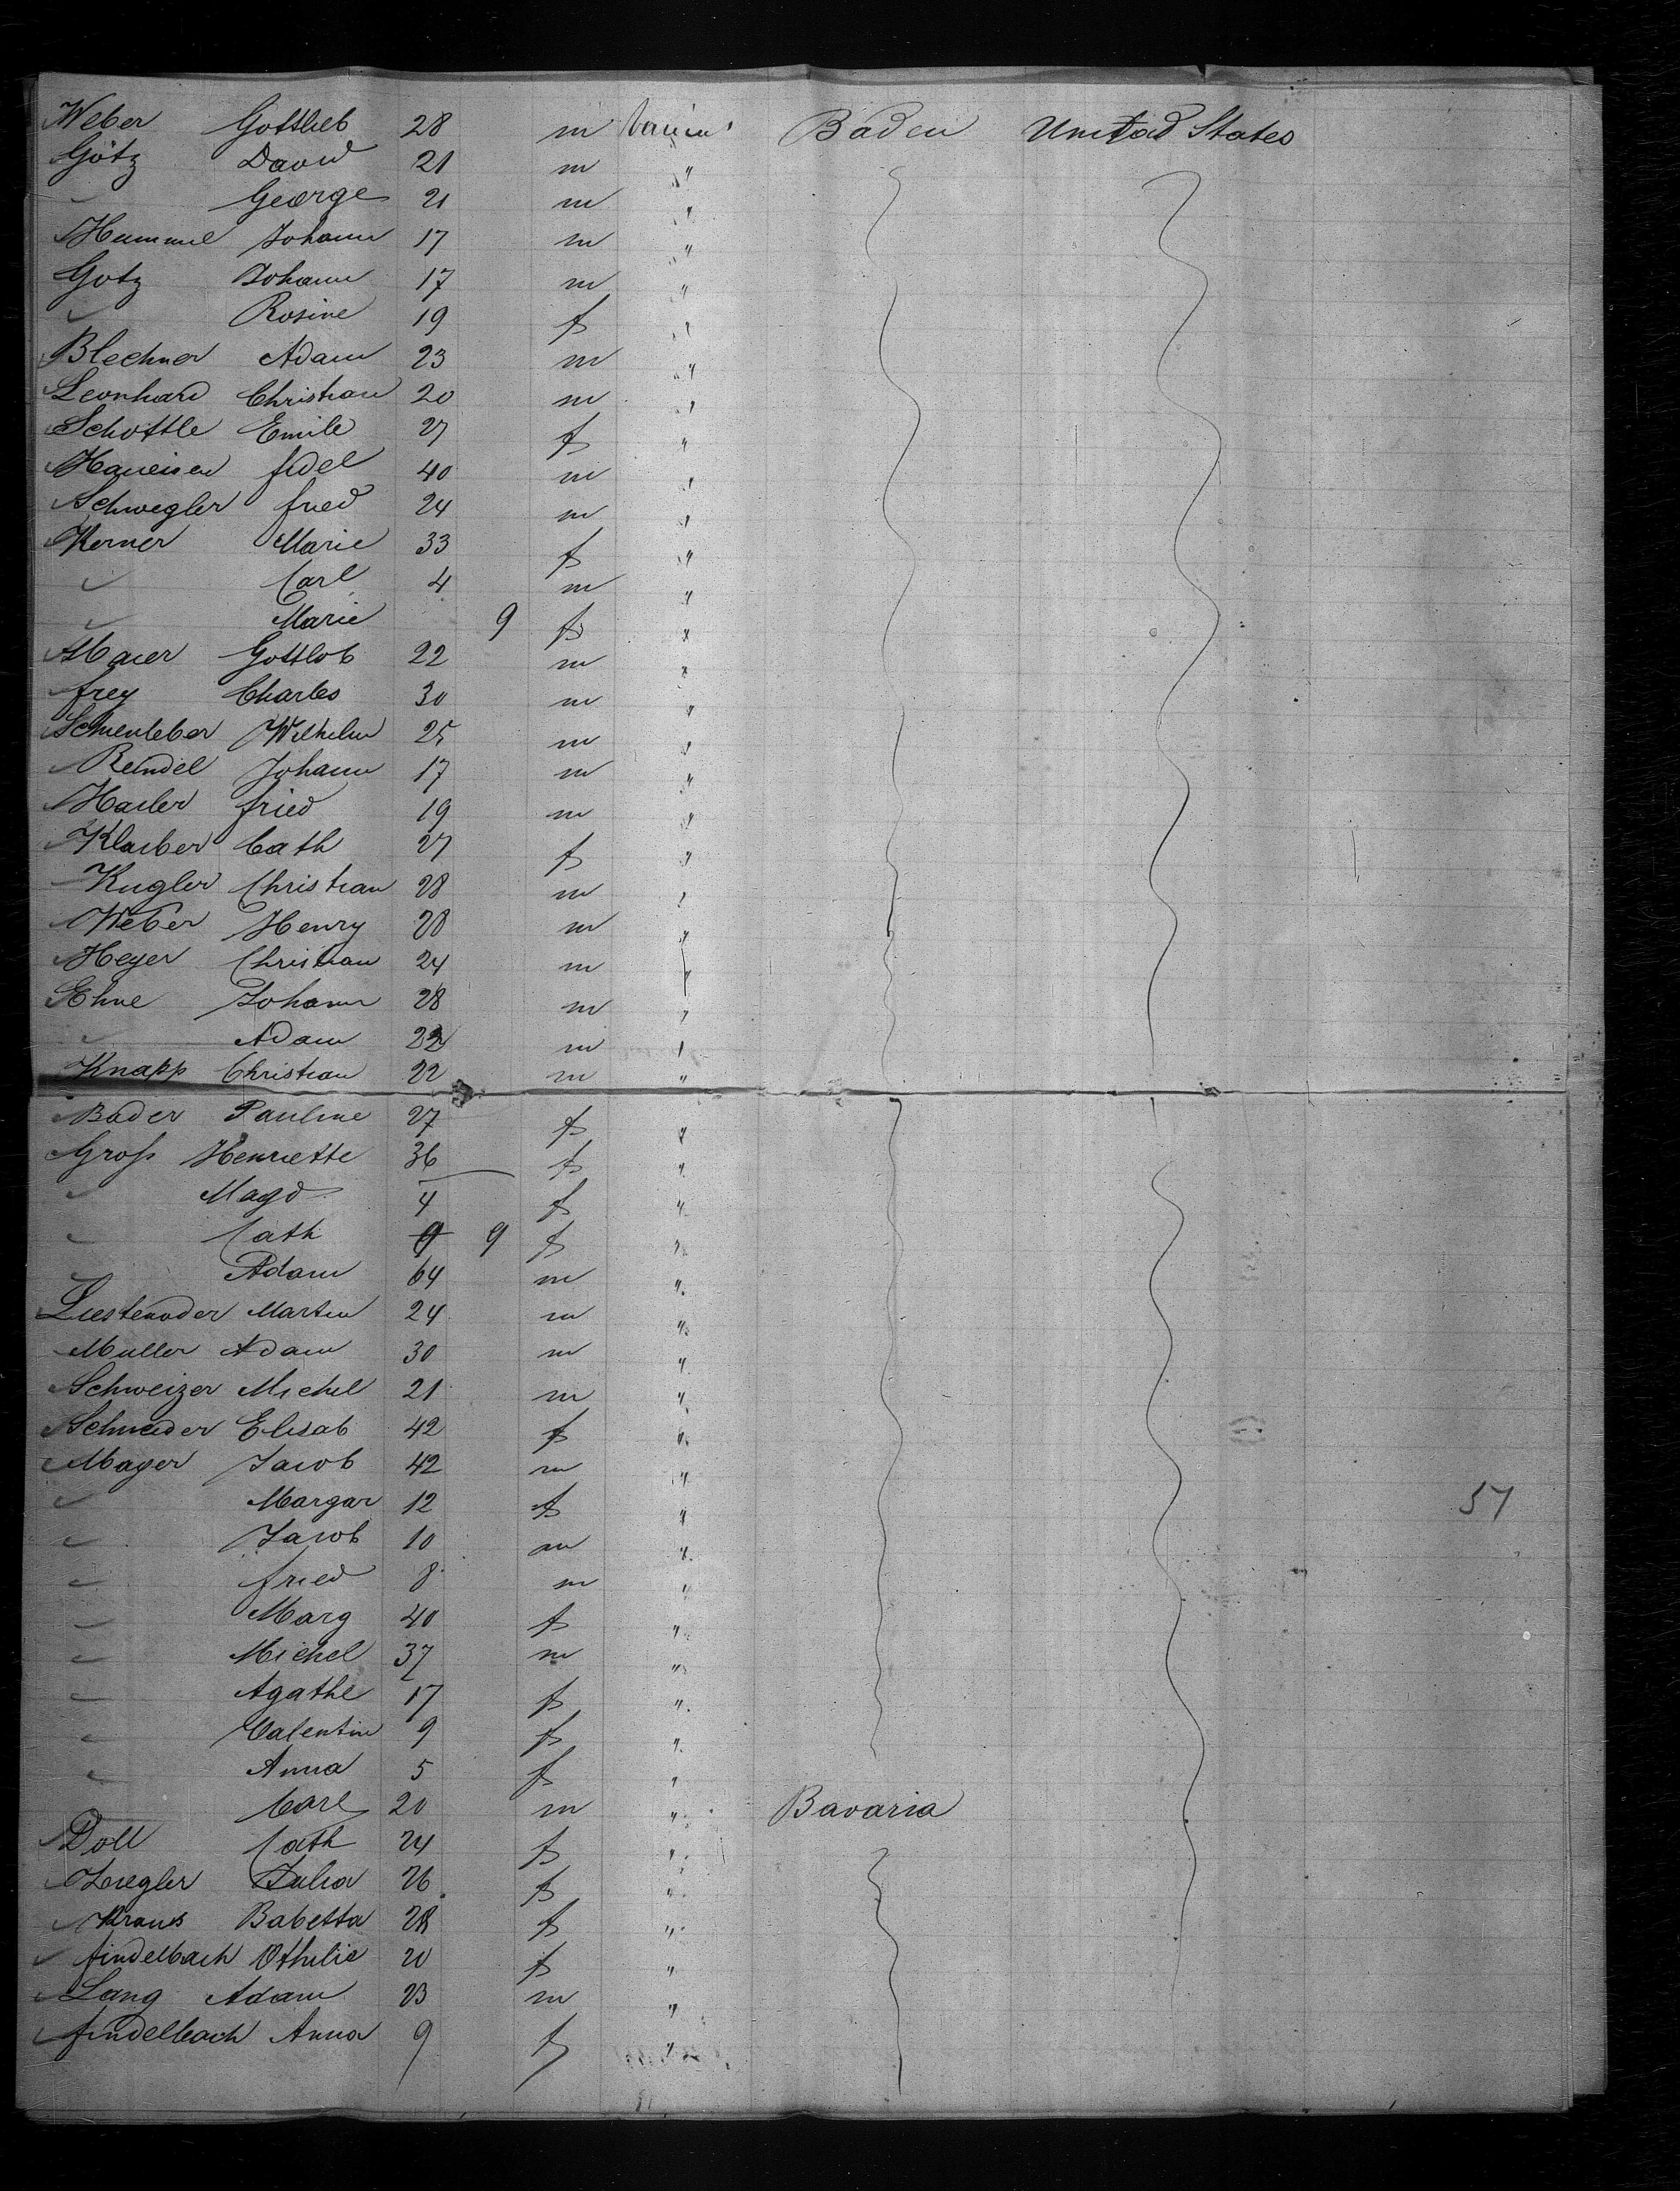 Weber Gottlieb 28 m various Baden United States
Götz David 21 m "
" George 21 m "
Hummel Johann 17 m "
Gotz Johann 17 m "
" Rosine 19 f "
Blechner Adam 23 m "
Leonhard Christian 20 m "
Schottle Emile 27 f "
Haueisen fidel 40 m "
Schwegler fried 24 m "
Kerner Marie 33 f "
" Carl 4 m "
" Marie 9 f "
Maier Gottlob 22 m "
frey Charles 30 m "
Wilhelm 25 m "
Reindel Johann 17 m "
Hailer fried 19 m "
Klaiber Cath 27 f "
Kugler Christian 28 m "
Weber Henry 28 m "
Heyer Christian 24 m "
Ehne Johann 28 m "
" Adam 22 m "
Knapp Christian 22 m "
Bader Pauline 27 f "
Groß Henriette 36 f "
" Magd 4 f "
" Cath 9 9 f "
" Adam 64 m "
Martin 24 m "
Muller Adam 30 m "
Schweizer Michel 21 m "
Schneider Elisab 42 f "
Mayer Jacob 42 m "
" Margar 12 f "
" Jacob 10 m "
" fried 8 m "
" Marg 40 f "
" Michel 37 m "
" Agathe 17 f "
" Valentin 9 f "
" Anna 5 f "
Carl 20 m " Bavaria
Doll Cath 24 f "
Ziegler Julia 26 f "
Kraus Babetta 28 f "
findelbach Othilie 20 f "
Lang Adam 23 m "
findelbach Anna 9 f "
57